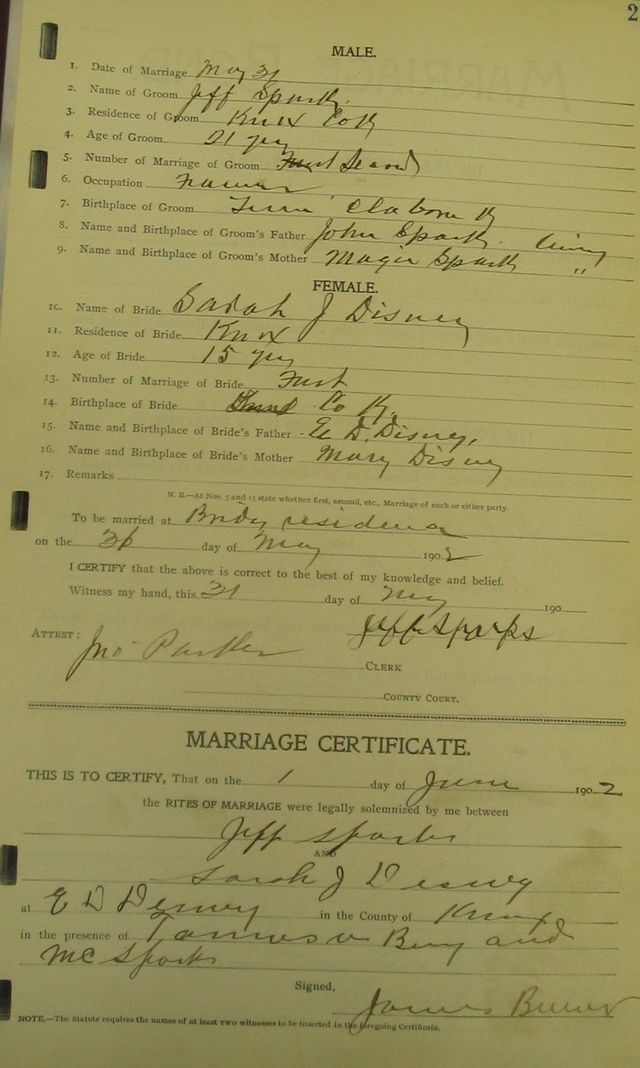 2
MALE.
1. Date of Marriage May 31
2. Name of Groom Jeff Sparks.
3. Residence of Groom Knox Co Ky
4. Age of Groom 21 yrs
5. Number of Marriage of Groom First Second
6. Occupation Farmer
7. Birthplace of Groom Tenn Claborne
8. Name and Birthplace of Groom's Father John Sparks.
9. Name and Birthplace of Groom's Mother Magie Sparks "
FEMALE.
10. Name of Bride Sarah J Disney
11. Residence of Bride Knox
12. Age of Bride 15 yrs
13. Number of Marriage of Bride First
14. Birthplace of Bride Co Ky.
15. Name and Birthplace of Bride's Father E D. Disney,
16. Name and Birthplace of Bride's Mother Mary Disney
17. Remarks
N. B.—At Nos. 5 and 13 state whether first, second, etc., Marriage of each or either party.
To be married at Brides residence
on the 31 day of May 1902
I CERTIFY that the above is correct to the best of my knowledge and belief.
Witness my hand, this 31 day of May 190
Jeff Sparks
ATTEST: Jno Parker
CLERK
COUNTY COURT.
MARRIAGE CERTIFICATE.
THIS IS TO CERTIFY, That on the 1 day of June 1902
the RITES OF MARRIAGE were legally solemnized by me between
Jeff Sparks
AND
Sarah J Disney
at E D Disney in the County of Knox
in the presence of and
MC Sparks
Signed,
James
NOTE.—The Statute requires the names of at least TWO witnesses to be inserted in the foregoing Certificate.